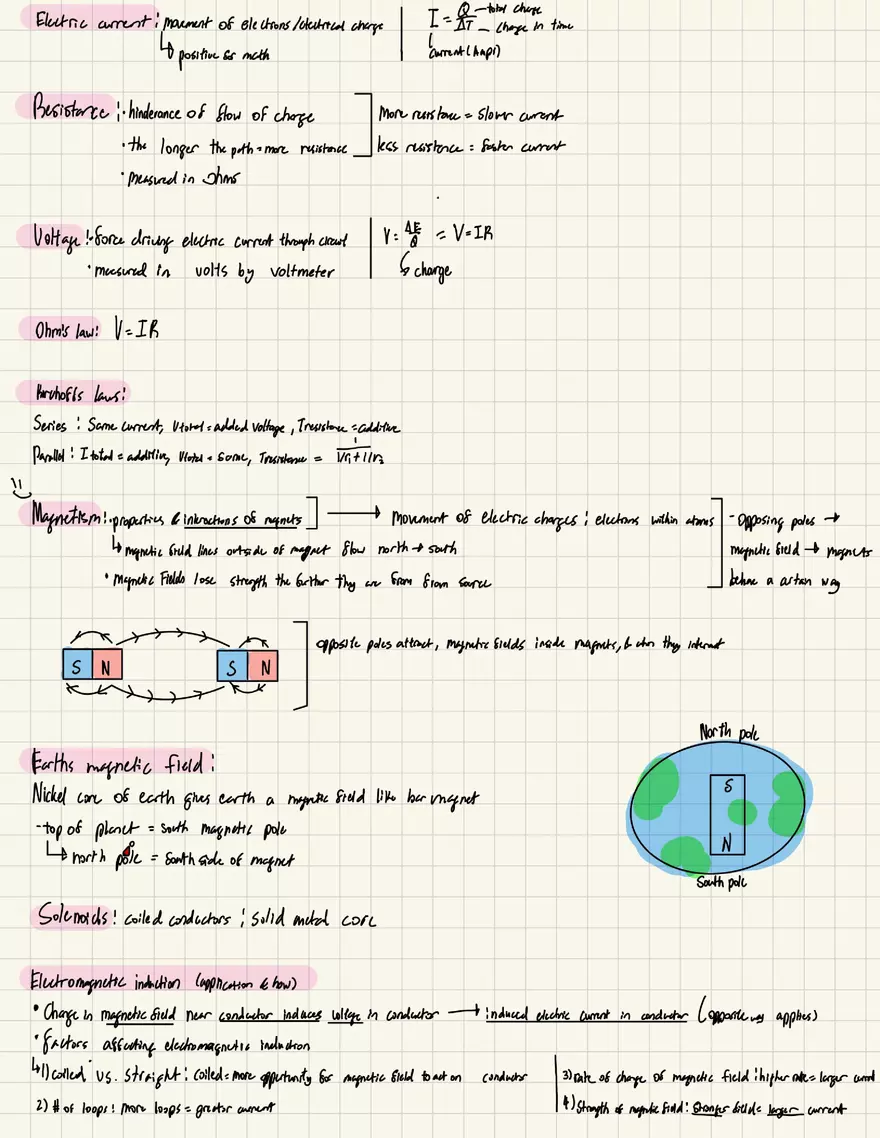 Electric current: movement of electrons/electrical charge
↳ positive for math
I = Q/ΔT - total charge
- change in time
current (Amps)
Resistance: • hinderance of flow of charge
• the longer the path = more resistance
• measured in ohms
More resistance = slower current
less resistance = faster current
Voltage: • force driving electric current through circuit
• measured in volts by voltmeter
V = ΔE/Q = V = IR
↳ charge
Ohm's law: V = IR
Kirchoffs laws:
Series: Same current, Vtotal = added voltage, Tresistance = additive
Parallel: I total = additive, Vtotal = same, Tresistance = 1/(1/r1 + 1/r2)
Magnetism: • properties & interactions of magnets → Movement of electric charges: electrons within atoms
↳ magnetic field lines outside of magnet flow north → south
• Magnetic Fields lose strength the further they are from from source
- Opposing poles →
magnetic field → magnets
behave a certain way
S N S N
opposite poles attract, magnetic fields inside magnets, & when they interact
Earths magnetic field:
Nickel core of earth gives earth a magnetic field like bar magnet
- top of planet = south magnetic pole
↳ north pole = South side of magnet
North pole
S
N
South pole
Solenoids: coiled conductors; solid metal core
Electromagnetic induction (application & how)
• Change in magnetic field near conductor induces voltage in conductor → induced electric current in conductor (opposite way applies)
• factors affecting electromagnetic induction
↳ 1) coiled vs. straight: coiled = more opportunity for magnetic field to act on conductor
2) # of loops: more loops = greater current
3) rate of change of magnetic field: higher rate = larger
4) Strength of magnetic field: stronger field = larger current